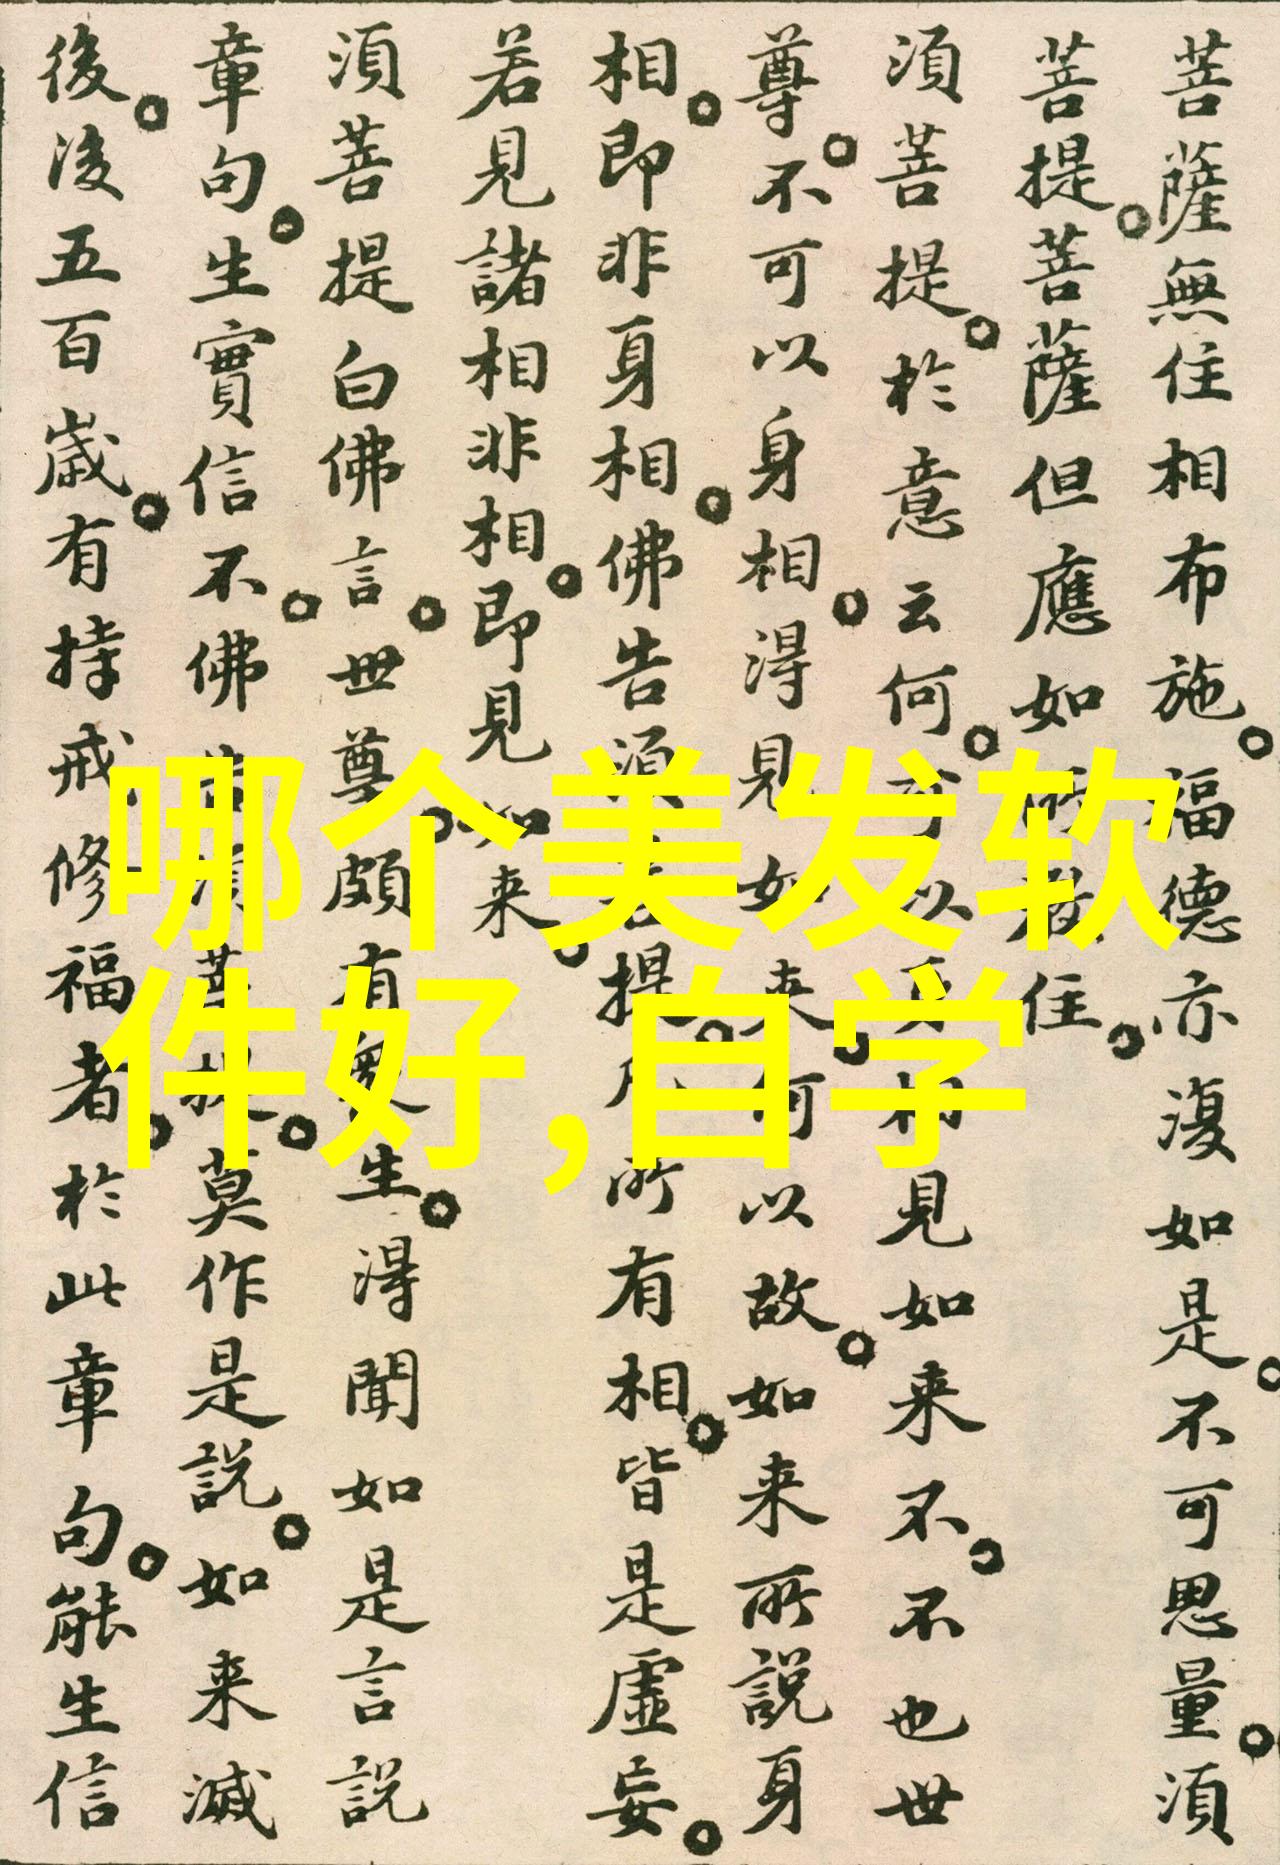 菩薩無住相布施福德亦復如是不可思量須
菩提菩薩但應如所教住
須菩提於意云何可以身相見如来不不也世
尊不可以身相得見如来何以故如来所說身
相即非身相佛告須菩提凡所有相皆是虛妄
若見諸相非相即見如来
須菩提白佛言世尊頗有眾生得聞如是言說
章句生實信不佛告須菩提莫作是說如来滅
後後五百歲有持戒修福者於此章句能生信
哪个美发软
件好,自学